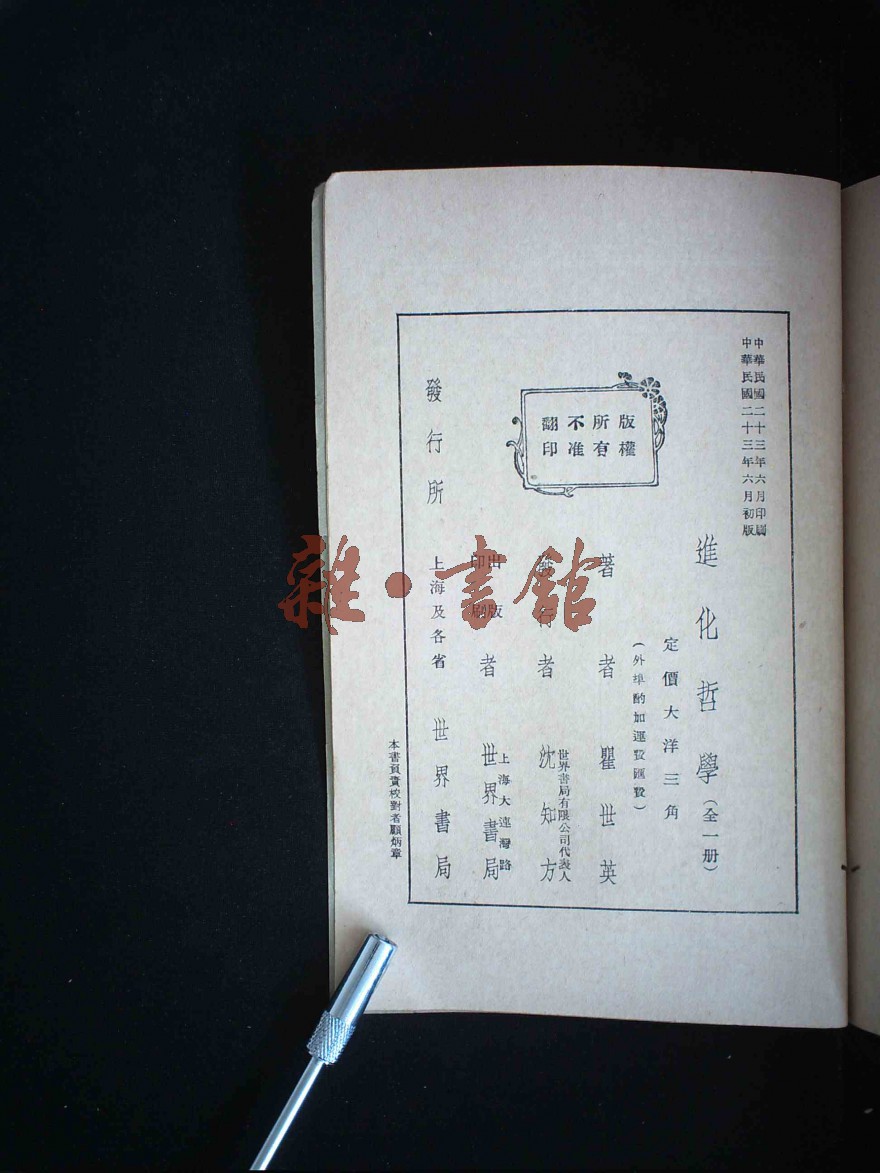 中華民國二十三年六月印刷
中華民國二十三年六月初版
進化哲學（全一册）
定價大洋三角
（外埠酌加運費匯費）
版權
所有
不准
翻印
著者 瞿世英
發行者 世界書局有限公司代表人 沈知方
出版
印刷
者 上海大連灣路 世界書局
發行所 上海及各省 世界書局
本書負責校對者顧炳章
雜·書館